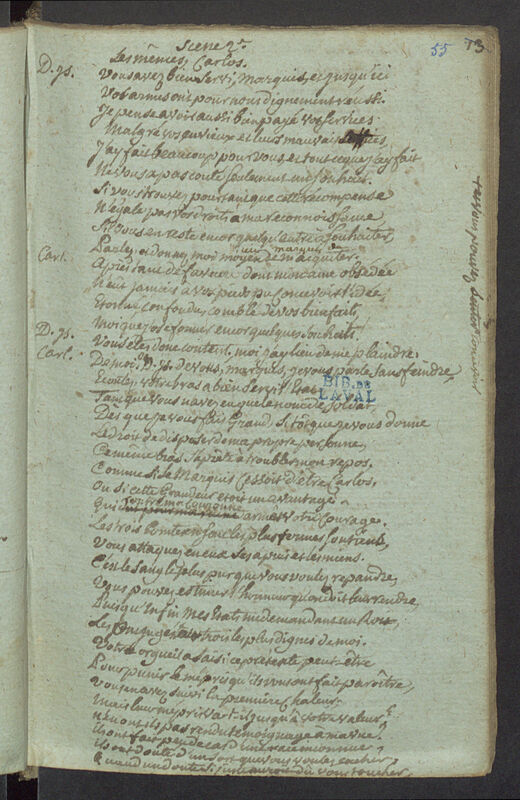 55 73
Scene 2e.
Les mêmes, Carlos.
D. Is.
Vous avez bien servi, Marquis, et jusqu'ici
Vos armes ont pour nous dignement réussi.
Je pense avoir aussi bien payé vos services
Malgré vos envieux et leurs mauvais offices,
J'ay fait beaucoup pour vous, et tout ce que j'ay fait
Ne vous a pas couté seulement un souhait.
Si vous trouvez pourtant que cette récompense
N'égale pas vos droits à ma reconnoissance
S'il vous en reste encor quelque autre à souhaiter
Parlez, et donnez moi moyen de m'acquiter.
Carl.
Après tant de faveurs dont mon ame obsedée
N'eut jamais à vos pieds pu concevoir l'idée,
Etonné, confondu, comblé de vos bienfaits,
Moi que j'ose former encor quelques souhaits!
D. Is.
Vous êtes donc content, moi j'ay lieu de me plaindre.
Carl.
De moi. D. Is. De vous, marquis, je vous parle sans feindre,
Ecoutez, votre bras a bien servi l'Etat
Tant que vous n'avez eu que le nom de soldat,
Dès que je vous fais Grand, sitôt que je vous donne
Le droit de disposer de ma propre personne,
Ce même bras s'apprête à troubler mon repos.
Comme si le Marquis cessoit d'être Carlos.
Ou si cette Grandeur étoit un avantage
Qui armer votre courage.
Les trois Comtes en sont les plus fermes soutiens,
Vous attaquez en eux ses apuis et les miens.
C'est le sang le plus pur que vous voulez repandre,
Vous pouvez estimer l'honneur qu'on doit leur rendre,
Puisqu'enfin mes Etats me demandant un Roi
Les ont jugés tous trois les plus dignes de moi.
Votre orgueil a saisi ce prétexte peut-être
Pour punir le mépris qu'ils vous ont fait paroître,
Vous en avez suivi la première chaleur.
Mais leur mépris va-t-il jusqu'à votre valeur?
N'en ont-ils pas rendu témoignage à ma vue.
Ils ont fait peu de cas d'une race inconnue,
Ils ont douté d'un sort que vous voulez cacher,
Quand un doute si juste auroit dû vous toucher,
BIB. DE
LAVAL